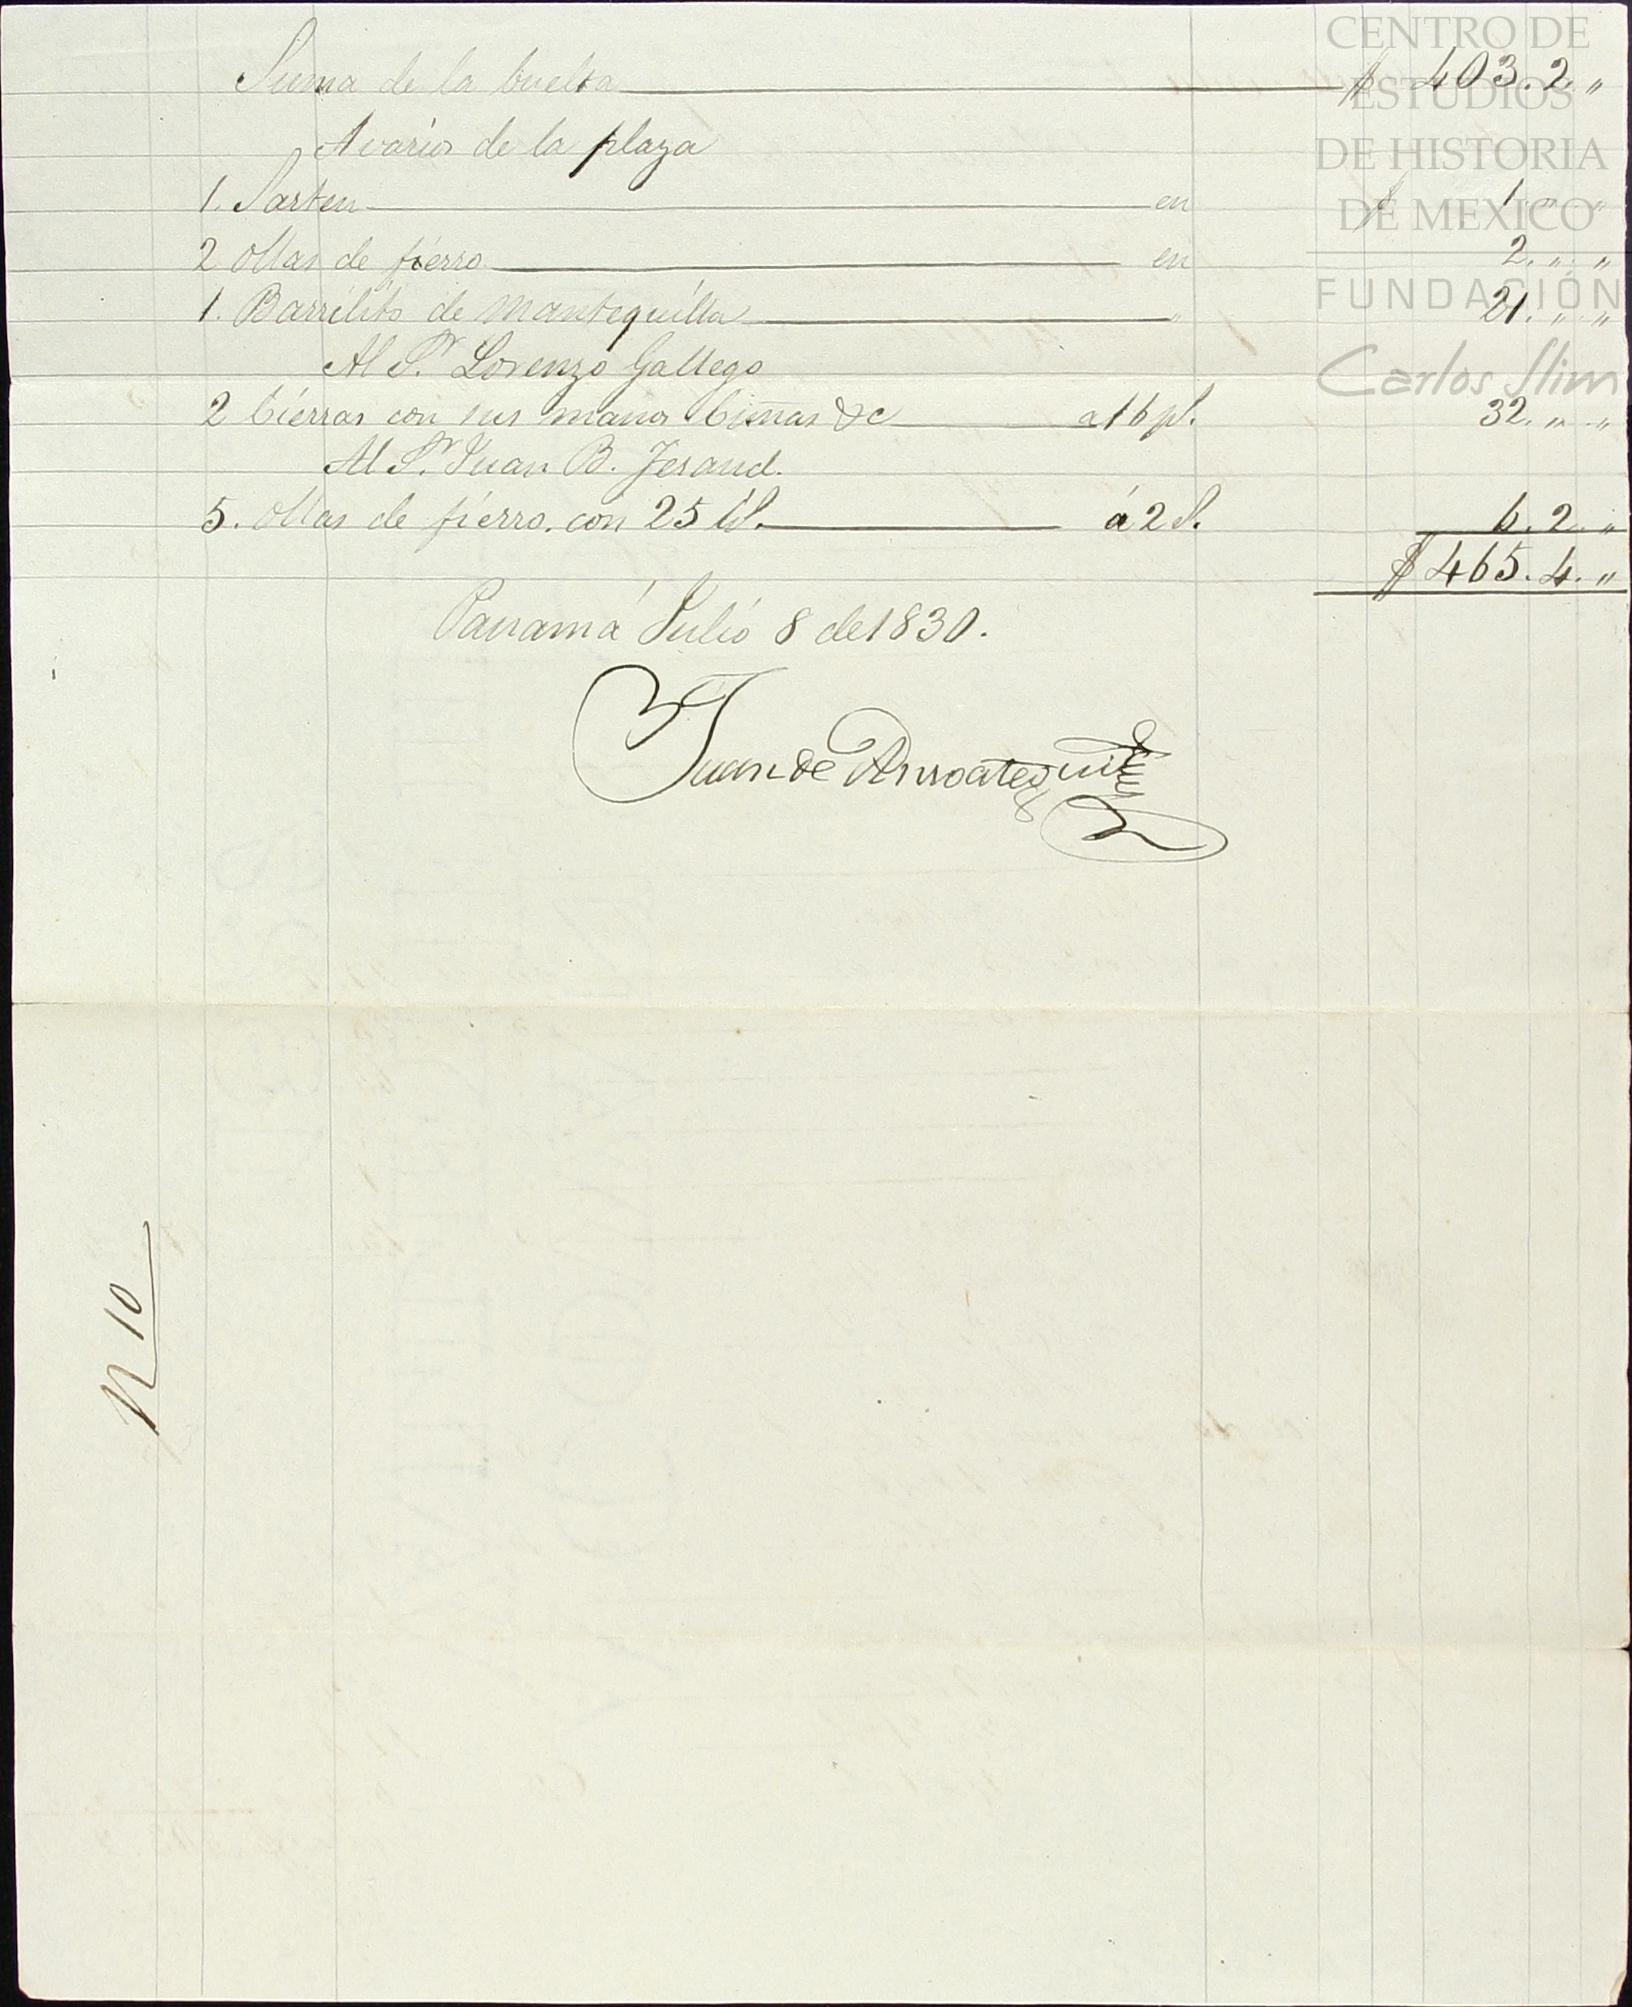 CENTRO DE
ESTUDIOS
DE HISTORIA
DE MEXICO
FUNDACIÓN
Carlos Slim
Suma de la buelta $ 403.2.,,
A varios de la plaza
1. Sarten en $ 1.,,.,,
2 ollas de fierro en 2.,,.,,
1. Barrilito de mantequilla ,, 21.,,.,,
Al Sr. Lorenzo Gallego
2 cierras con sus manos &c a 16 ps. 32.,,.,,
Al Sr. Juan B.
5. ollas de fierro. con 25 lbs. á 2 rs. 6.2.,,
$ 465.4.,,
Panamá Julio 8 de 1830.
Juan de Arroategui
N 10